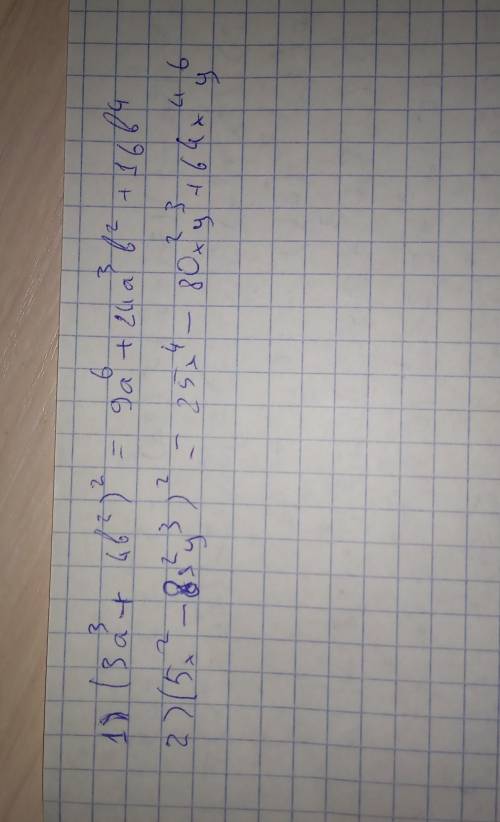 1) (3a³ + 4b²)² = 9a⁶ + 24a³b² + 16b⁴
2) (5x² - 8x²y³)² = 25x⁴ - 80x²y³ + 64x⁴y⁶